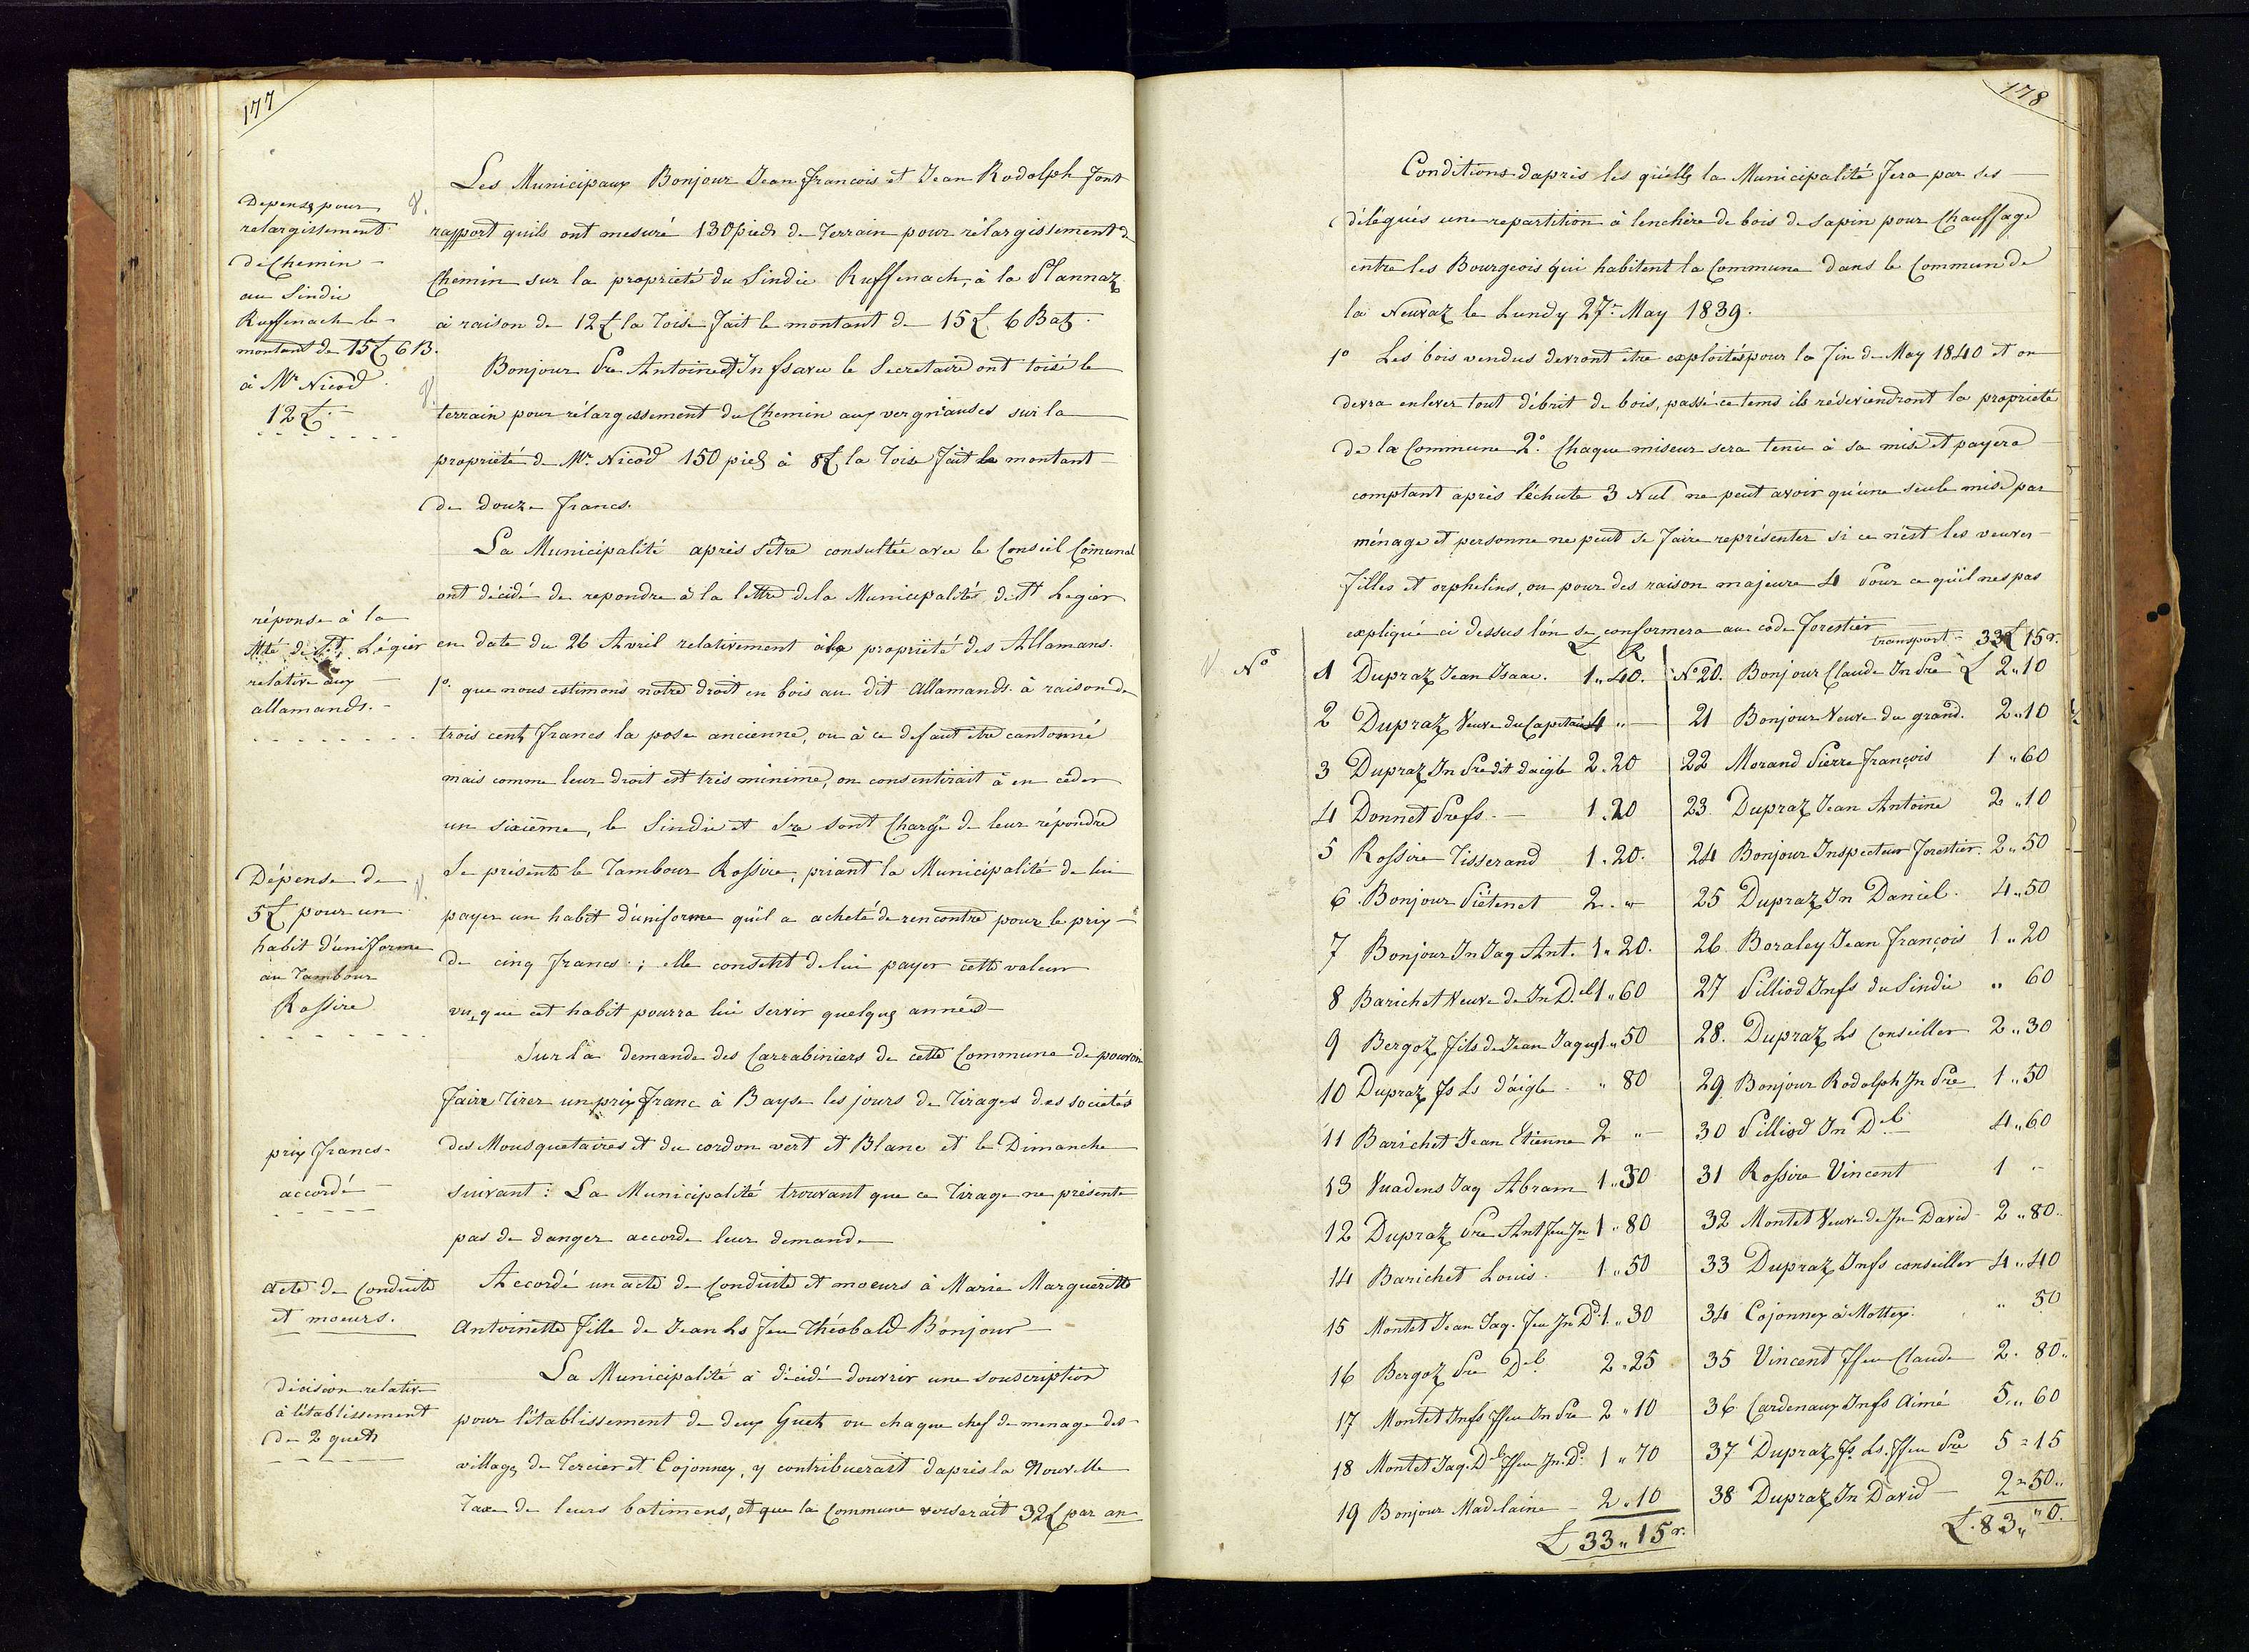 177
Les Municipaux Bonjour Jean francois et Jean Rodolph font
rapport quils ont mesuré 130 pieds de Terrain pour rélargissement de
Chemin sur la proprieté du Sindic Ruffenach, à la Plannaz
à raison de 12 £ la Toise fait le montant de 15 £ 6 Batz.
Depense pour
relargissement
de Chemin
au Sindic
Ruffenach le
montant de 15 £ 6 B.
à Mr Nicod
12 £.
Bonjour Pre Antoine et Jn fs avec le Secretaire ont toisé le
terrain pour rélargissement du Chemin aux vergnauses sur la
proprieté de Mr. Nicod 150 pieds à 8 £ la Toise fait le montant
de douze francs.
La Municipalité après s'être consultée avec le Conseil Comunal
ont décidé de repondre à la lettre de la Municipalités de St Legier
en date du 26 Avril relativement à la proprieté des Allamans.
1o. que nous estimons notre droit en bois au dit Allamands à raison de
trois cent francs la pose ancienne, ou à ce defaut être cantonné
mais comme leur droit est très minime, on consentirait à en céder
un sixième, le Sindic et Sre sont Chargé de leur répondre
réponse à la
Mté de St. Légier
relative aux
allamands.
Se présente le Tambour Rossire, priant la Municipalité de lui
payer un habit d'uniforme qu'il a acheté de rencontre pour le prix
de cinq francs ; elle consent de lui payer cette valeur
vu, que cet habit pourra lui servir quelques années
Dépense de
5 £ pour un
habit d'uniforme
au Tambour
Rossire
Sur la demande des Carrabiniers de cette Commune de pouvoir
faire Tirer un prix franc à Bayse les jours de Tirages des societés
des Mousquetaires et du cordon vert et Blanc et le Dimanche
suivant : La Municipalité trouvant que ce Tirage ne présente
pas de danger accorde leur demande
prix francs
accordé
Accordé un acte de Conduite et moeurs à Marie Margueritte
Antoinette fille de Jean Ls feu Théobald Bonjour
acte de Conduite
et moeurs.
La Municipalité à décidé douvrir une souscription
pour l'établissement de deux Guets ou chaque chef de menage des
villages de Tercier et Cojonnex, y contribuerait d'après la Nouvelle
Taxe de leurs batimens, et que la Commune verserait 32 £ par an
décision relative
à l'établissement
de 2 guets
178
Conditions daprès les quells la Municipalité fera par ses
délégués une repartition à lenchère de bois de sapin pour Chauffage
entre les Bourgeois qui habitent la Commune dans le Commun de
la Neuvaz le Lundy 27e May 1839.
1o Les bois vendus devront être exploités pour la fin de May 1840 et on
devra enlever tout débrit de bois, passé ce tems ils rédeviendront la proprieté
de la Commune 2o. Chaque miseur sera tenu à sa mise et payera
comptant après l'échute 3 Nul ne peut avoir qu'une seule mise par
ménage et personne ne peut se faire représenter si ce n'est les veuves
filles et orphelins, ou pour des raison majeure 4 Pour ce qu'il nes pas
expliqué ci dessus l'on se conformera au code forestier
£ R
No 1 Dupraz Jean Isaac. 1 " 40.
2 Dupraz Veuve du Capitaine 4 "
3 Dupraz Jn Pre dit daigle 2 . 20
4 Donnet Pre fs. 1 . 20
5 Rossire Tisserand 1 . 20.
6 Bonjour Piétenet 2 . "
7 Bonjour Jn Jaq Ant. 1 " 20.
8 Barichet Veuve de Jn Del 1 " 60
9 Bergoz fils de Jean Jaques 1 " 50
10 Dupraz Fs Ls d'aigle " 80
11 Barichet Jean Etienne 2 "
13 Vuadens Jaq Abram 1 " 50
12 Dupraz Pre Ant feu Jn 1 " 80
14 Barichet Louis. 1 " 50
15 Montet Jean Jaq. feu Jn Dd 1 " 30
16 Bergoz Pre Del 2 " 25
17 Montet Jn fs ffeu Jn Pre 2 " 10
18 Montet Jaq. Del ffeu Jn. Dd 1 " 70
19 Bonjour Madelaine 2 " 10
£ 33 " 15 r.
transport 33 £ 15 r.
No 20. Bonjour Claude Jn Pre £ 2 " 10
21 Bonjour Veuve du grand. 2 " 10
22 Morand Pierre François 1 " 60
23. Dupraz Jean Antoine 2 " 10
24 Bonjour Inspecteur forestier. 2 " 50
25 Dupraz Jn Daniel. 4 " 50
26 Boraley Jean François 1 " 20
27 Pilliod Jn fs du Sindic " 60
28. Dupraz Ls Conseiller 2 " 30
29 Bonjour Rodolph Jn Pre 1 " 50
30 Pilliod Jn Del 4 " 60
31 Rossire Vincent 1 "
32 Montet Veuve de Jn David 2 " 80
33 Dupraz Jn fs conseiller 4 " 40
34 Cojonnex à Mottex. " 50
35 Vincent ffeu Claude 2 . 80
36 Cardenaux Jn fs Aimé 5 " 60
37 Dupraz Fs. Ls. ffeu Pre 5 = 15
38 Dupraz Jn David 2 = 50
£. 83 " " 0.